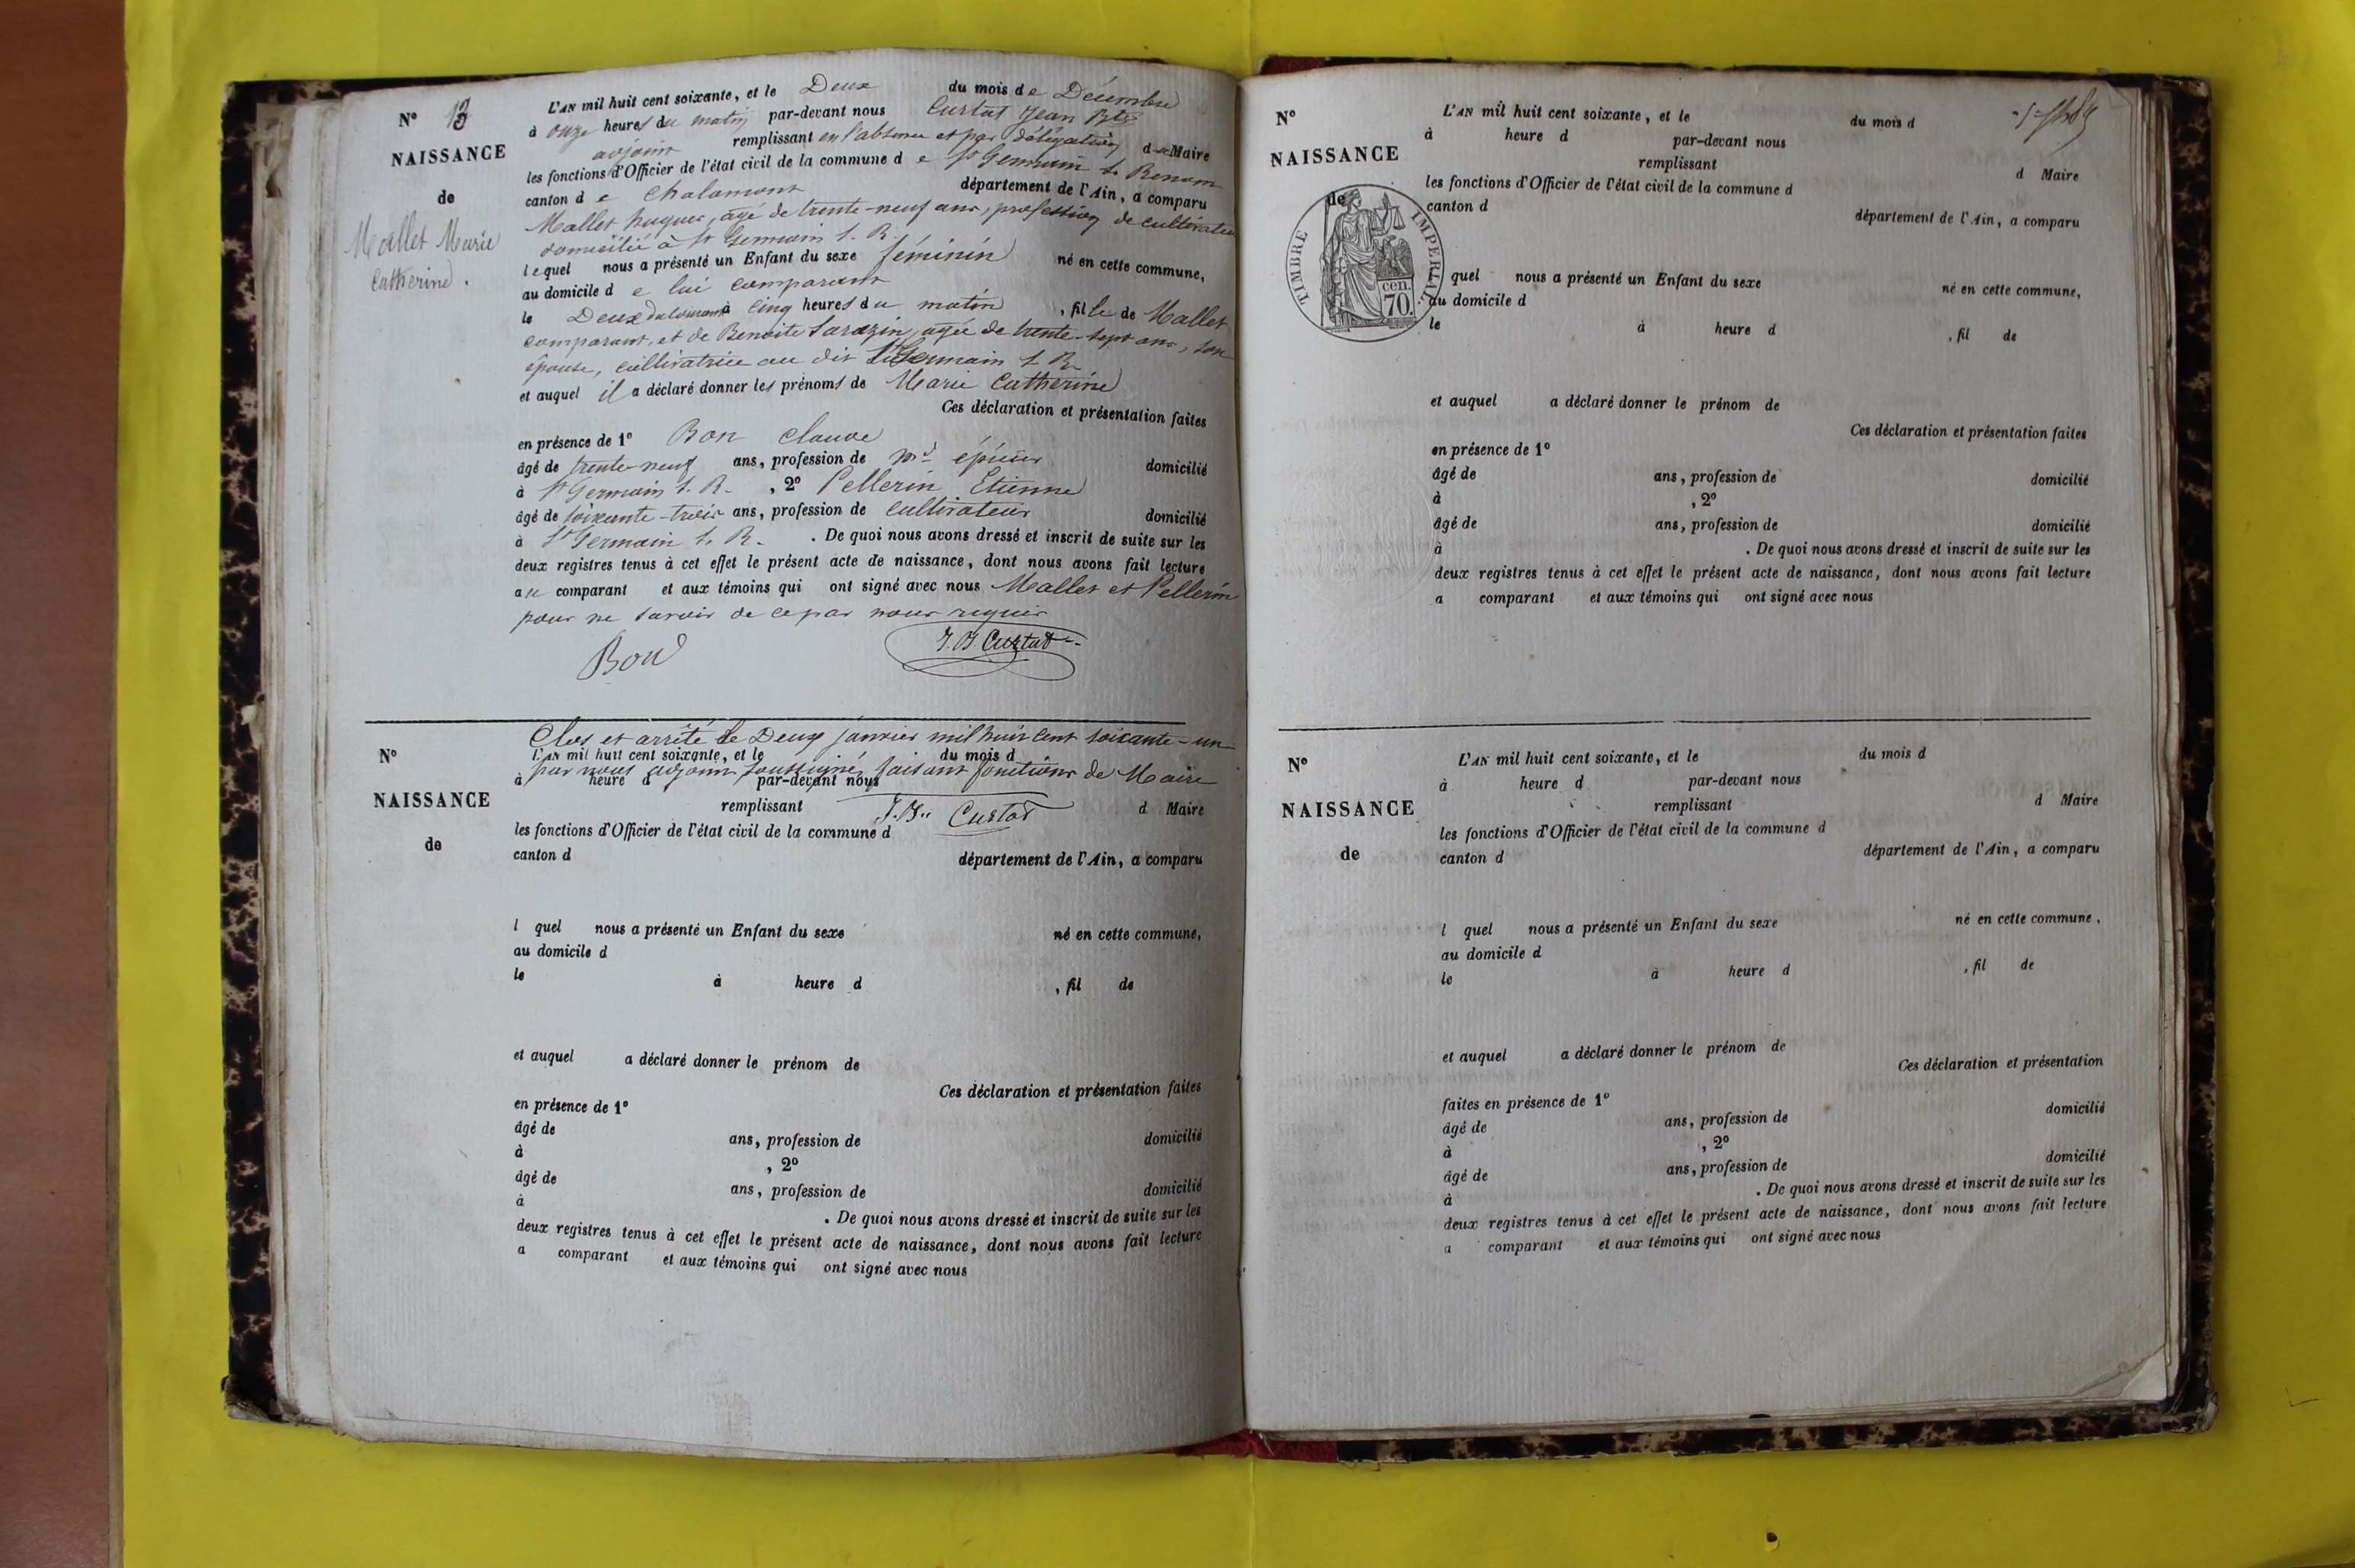 N° 13
NAISSANCE
de
Mallet Marie
Catherine.
L'AN mil huit cent soixante, et le Deux du mois de Décembre
à onze heures du matin par-devant nous Curtat Jean Bte
adjoint remplissant en l'absence et par délégation de Maire
les fonctions d'Officier de l'état civil de la commune de St Germain s. Renom
canton de Chalamont département de l'Ain, a comparu
Mallet hugues, agé de trente-neuf ans, profession de cultivateur
domicilié à St Germain s. R.
lequel nous a présenté un Enfant du sexe féminin né en cette commune,
au domicile de lui comparant
le Deux du courant à cinq heures du matin, fille de Mallet
comparant, et de Benoite Sarazin, agée de trente-sept ans, son
épouse, cultivatrice au dit St Germain s. R.
et auquel il a déclaré donner les prénoms de Marie Catherine
Ces déclaration et présentation faites
en présence de 1° Bon Claude
âgé de trente-neuf ans, profession de md épicier domicilié
à St Germain s. R. , 2° Pellerin Etienne
âgé de soixante-trois ans, profession de cultivateur domicilié
à St Germain s. R. . De quoi nous avons dressé et inscrit de suite sur les
deux registres tenus à cet effet le présent acte de naissance, dont nous avons fait lecture
au comparant et aux témoins qui ont signé avec nous Mallet et Pellerin
pour ne savoir de ce par nous requis
Bon J. B Curtat
Clos et arrêté le Deux janvier mil huit cent soixante-un
N°
NAISSANCE
de
L'AN mil huit cent soixante, et le du mois d
par nous adjoint soussigné, faisant fonctions de Maire
à heure d par-devant nous
remplissant d Maire
J. B. Curtat
les fonctions d'Officier de l'état civil de la commune d
canton d département de l'Ain, a comparu
l quel nous a présenté un Enfant du sexe né en cette commune,
au domicile d
le à heure d , fil de
et auquel a déclaré donner le prénom de
Ces déclaration et présentation faites
en présence de 1°
âgé de ans, profession de domicilié
à , 2°
âgé de ans, profession de domicilié
à . De quoi nous avons dressé et inscrit de suite sur les
deux registres tenus à cet effet le présent acte de naissance, dont nous avons fait lecture
a comparant et aux témoins qui ont signé avec nous
N°
NAISSANCE
de
TIMBRE IMPERIAL
70 cen.
L'AN mil huit cent soixante, et le du mois d
à heure d par-devant nous
remplissant d Maire
les fonctions d'Officier de l'état civil de la commune d
canton d département de l'Ain, a comparu
l quel nous a présenté un Enfant du sexe né en cette commune,
au domicile d
le à heure d , fil de
et auquel a déclaré donner le prénom de
Ces déclaration et présentation faites
en présence de 1°
âgé de ans, profession de domicilié
à , 2°
âgé de ans, profession de domicilié
à . De quoi nous avons dressé et inscrit de suite sur les
deux registres tenus à cet effet le présent acte de naissance, dont nous avons fait lecture
a comparant et aux témoins qui ont signé avec nous
N°
NAISSANCE
de
L'AN mil huit cent soixante, et le du mois d
à heure d par-devant nous
remplissant d Maire
les fonctions d'Officier de l'état civil de la commune d
canton d département de l'Ain, a comparu
l quel nous a présenté un Enfant du sexe né en cette commune,
au domicile d
le à heure d , fil de
et auquel a déclaré donner le prénom de
Ces déclaration et présentation
faites en présence de 1°
âgé de ans, profession de domicilié
à , 2°
âgé de ans, profession de domicilié
à . De quoi nous avons dressé et inscrit de suite sur les
deux registres tenus à cet effet le présent acte de naissance, dont nous avons fait lecture
a comparant et aux témoins qui ont signé avec nous